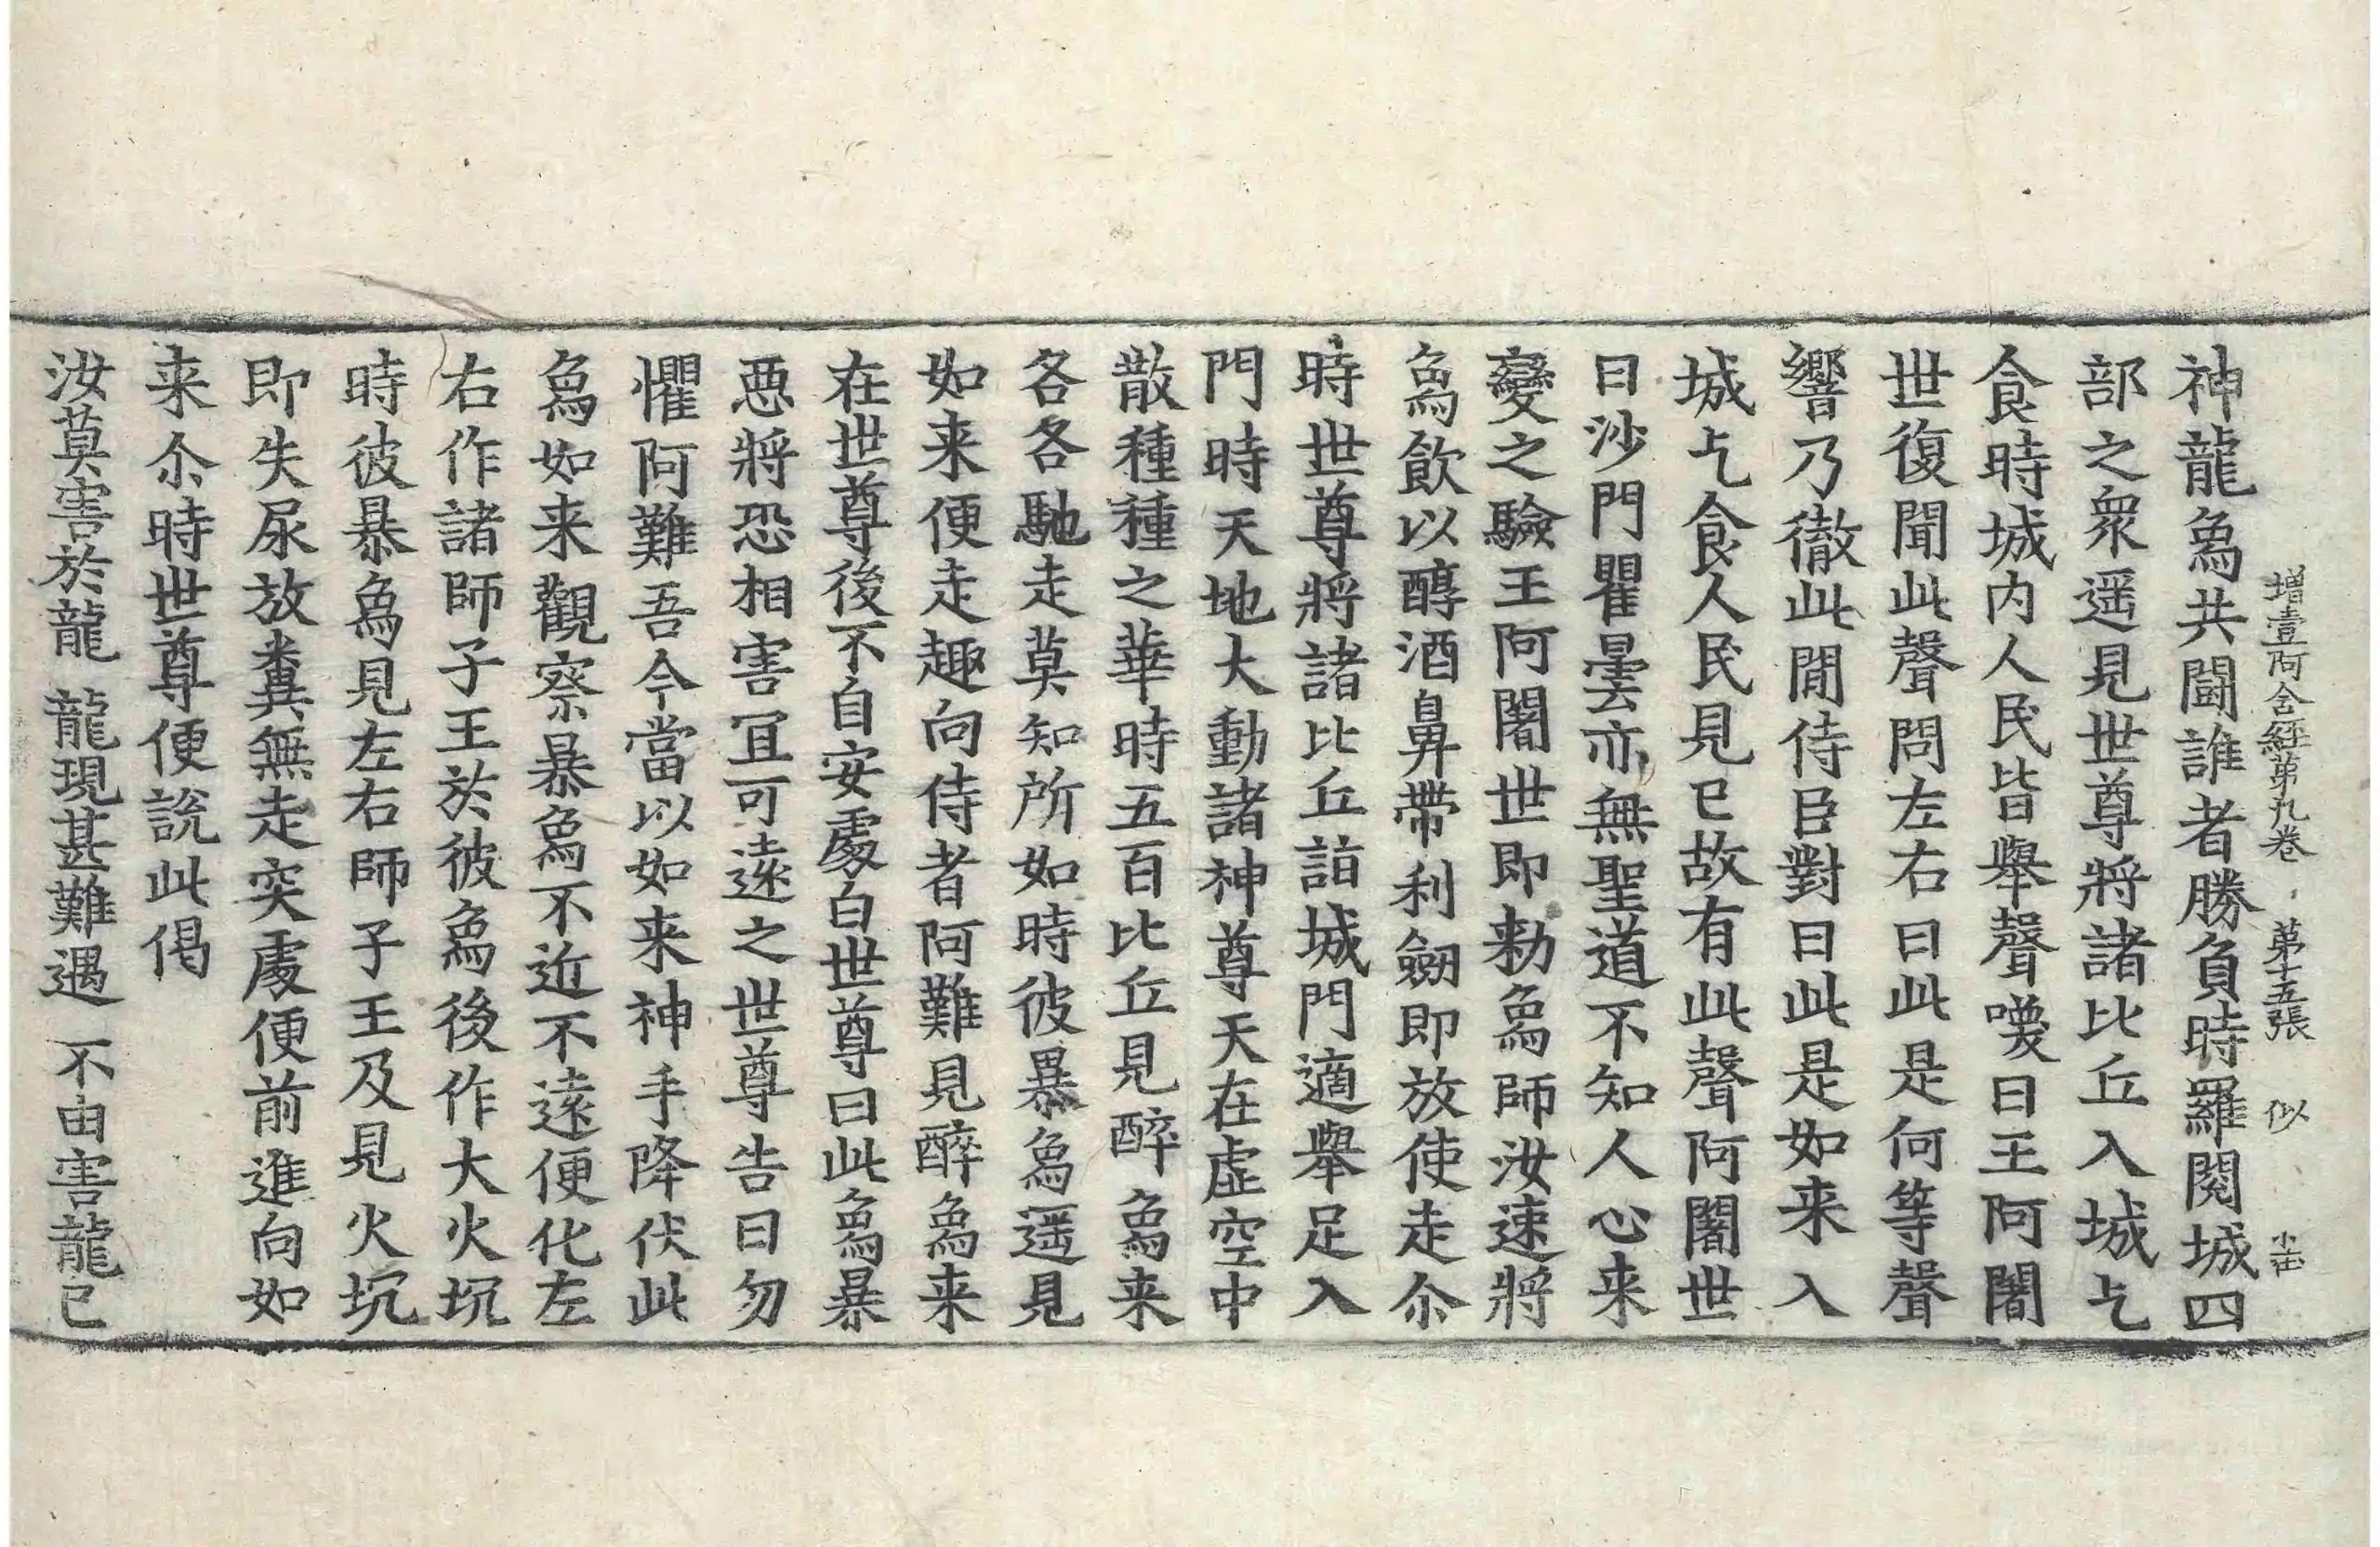 增壹阿含經第九卷 第十五張 似
神龍為共鬪誰者勝負時羅閱城四
部之衆遥見世尊將諸比丘入城乞
食時城内人民皆舉聲喚曰王阿闍
世復聞此聲問左右曰此是何等聲
響乃徹此間侍臣對曰此是如来入
城乞食人民見已故有此聲阿闍世
曰沙門瞿曇亦無聖道不知人心来
變之驗王阿闍世即勑象師汝速將
象飲以醇酒鼻帶利劒即放使走尒
時世尊將諸比丘詣城門適舉足入
門時天地大動諸神尊天在虚空中
散種種之華時五百比丘見醉象来
各各馳走莫知所如時彼暴象遥見
如来便走趣向侍者阿難見醉象来
在世尊後不自安處白世尊曰此象暴
惡將恐相害冝可遠之世尊告曰勿
懼阿難吾今當以如来神手降伏此
象如来觀察暴象不近不遠便化左
右作諸師子王於彼象後作大火坑
時彼暴象見左右師子王及見火坑
即失尿放糞無走突處便前進向如
来尒時世尊便說此偈
汝莫害於龍 龍現甚難遇 不由害龍已